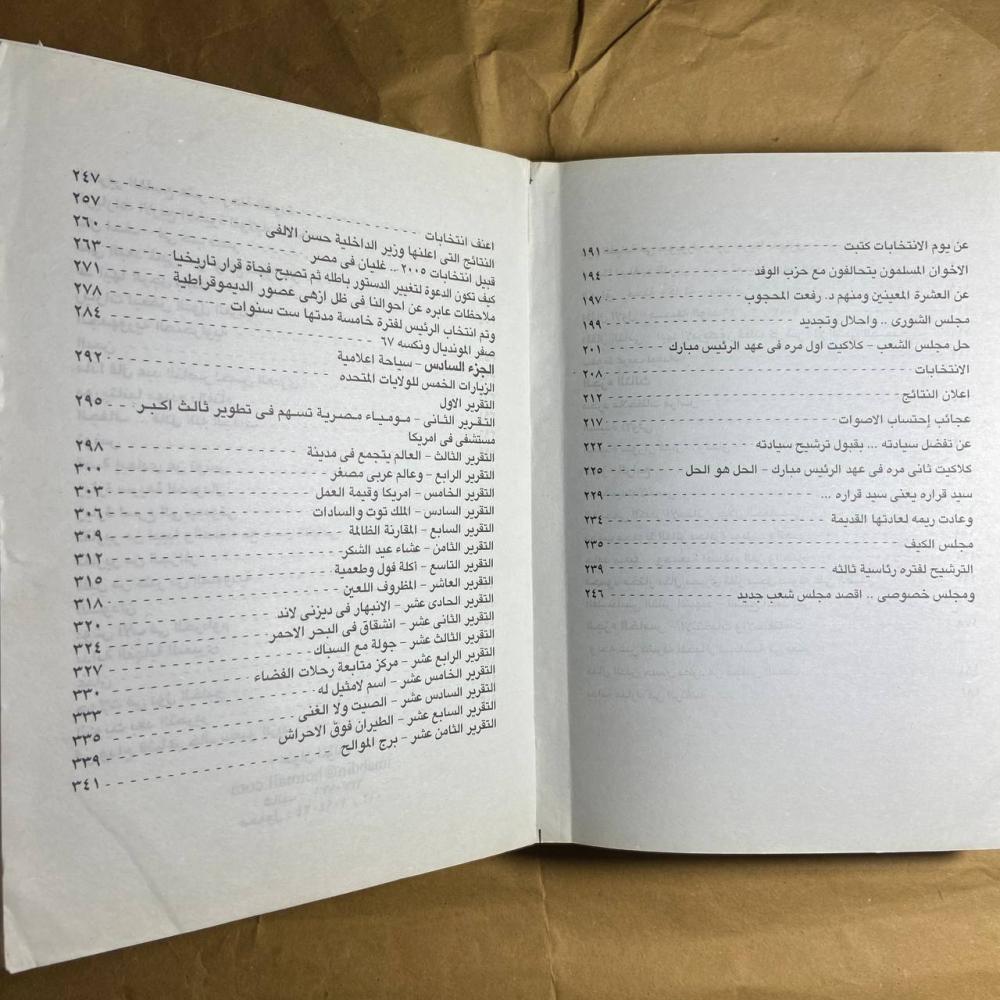 عن يوم الانتخابات كتبت ١٩١
الاخوان المسلمون يتحالفون مع حزب الوفد ١٩٤
عن العشرة المعينين ومنهم د. رفعت المحجوب ١٩٧
مجلس الشورى .. واحلال وتجديد ١٩٩
حل مجلس الشعب - كلاكيت اول مره فى عهد الرئيس مبارك ٢٠١
الانتخابات ٢٠٨
اعلان النتائج ٢١٢
عجائب إحتساب الاصوات ٢١٧
عن تفضل سيادته ... بقبول ترشيح سيادته ٢٢٢
كلاكيت ثانى مره فى عهد الرئيس مبارك - الحل هو الحل ٢٢٥
سيد قراره يعنى سيد قراره ... ٢٢٩
وعادت ريمه لعادتها القديمة ٢٣٤
مجلس الكيف ٢٣٥
الترشيح لفتره رئاسية ثالثه ٢٣٩
ومجلس خصوصى .. اقصد مجلس شعب جديد ٢٤٦
اعنف انتخابات ٢٤٧
النتائج التى اعلنها وزير الداخلية حسن الالفى ٢٥٧
قبيل انتخابات ٢٠٠٥ .. غليان فى مصر ٢٦٠
كيف تكون الدعوة لتغيير الدستور باطله ثم تصبح فجأة قرار تاريخيا ٢٦٣
ملاحظات عابره عن احوالنا فى ظل ازهى عصور الديموقراطية ٢٧١
وتم انتخاب الرئيس لفترة خامسة مدتها ست سنوات ٢٧٨
صفر المونديال ونكسه ٦٧ ٢٨٤
الجزء السادس - سياحة اعلامية
الزيارات الخمس للولايات المتحده ٢٩٢
التقرير الاول
التقرير الثانى - مومياء مصرية تسهم فى تطوير ثالث اكبر ٢٩٥
مستشفى فى امريكا
التقرير الثالث - العالم يتجمع فى مدينة ٢٩٨
التقرير الرابع - وعالم عربى مصغر ٣٠٠
التقرير الخامس - امريكا وقيمة العمل ٣٠٣
التقرير السادس - الملك توت والسادات ٣٠٦
التقرير السابع - المقارنة الظالمة ٣٠٩
التقرير الثامن - عشاء عيد الشكر ٣١٢
التقرير التاسع - أكلة فول وطعمية ٣١٥
التقرير العاشر - المظروف اللعين ٣١٨
التقرير الحادى عشر - الانبهار فى ديزنى لاند ٣٢٠
التقرير الثانى عشر - انشقاق فى البحر الاحمر ٣٢٤
التقرير الثالث عشر - جولة مع السباك ٣٢٧
التقرير الرابع عشر - مركز متابعة رحلات الفضاء ٣٣٠
التقرير الخامس عشر - اسم لامثيل له ٣٣٣
التقرير السادس عشر - الصيت ولا الغنى ٣٣٥
التقرير السابع عشر - الطيران فوق الاحراش ٣٣٩
التقرير الثامن عشر - برج الموالح ٣٤١